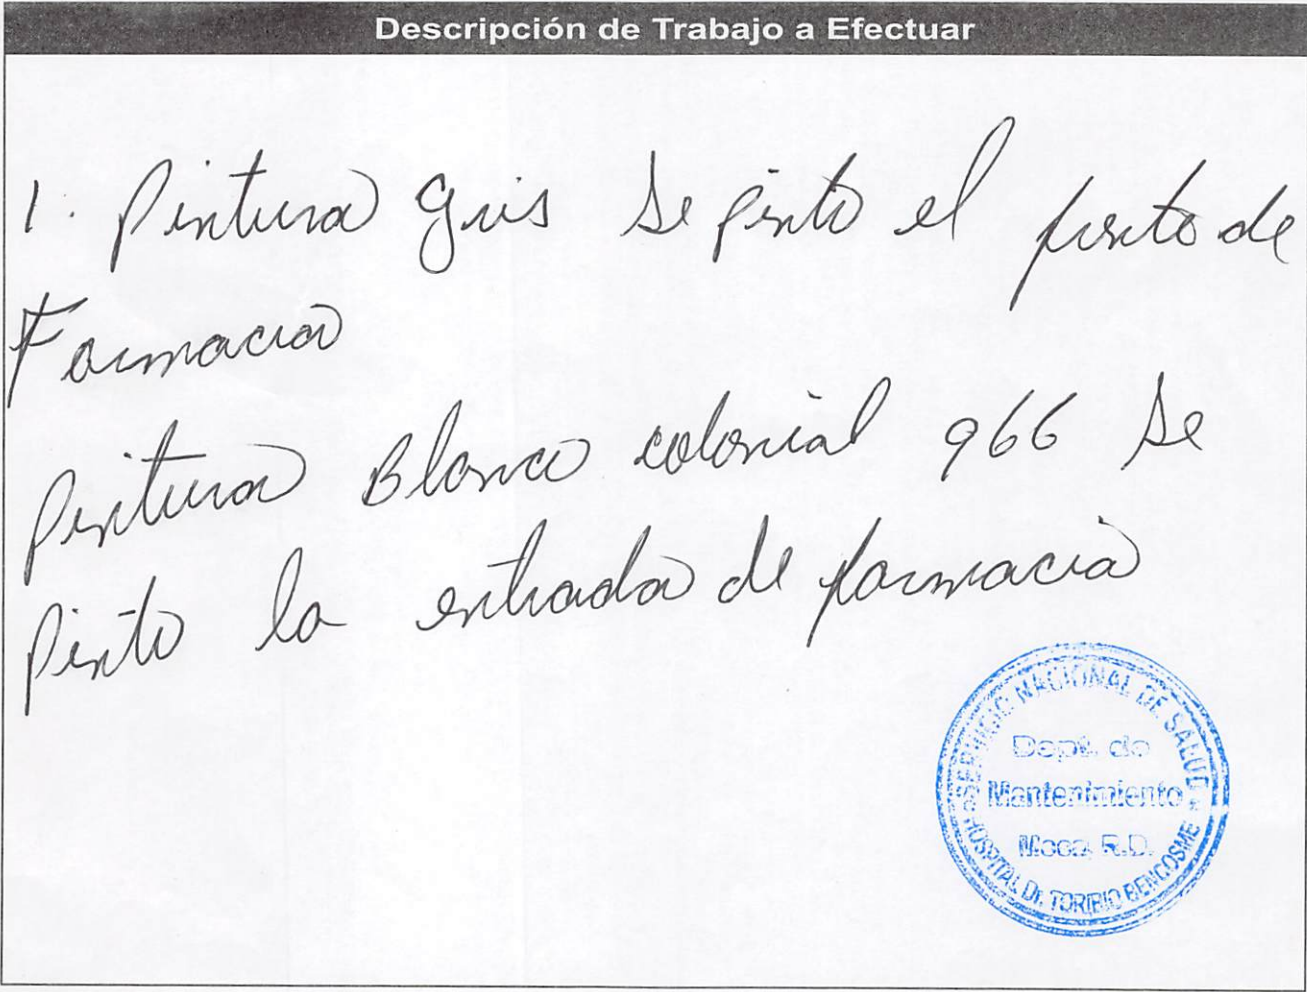 Descripción de Trabajo a Efectuar
1. Pintura gris se pinto el punto de
Farmacia
Pintura Blanco colonial 966 se
Pinto la entrada de farmacia
SERVICIO NACIONAL DE SALUD
Dept. de
Mantenimiento
Moca, R.D.
HOSPITAL Dr. TORIBIO BENCOSME